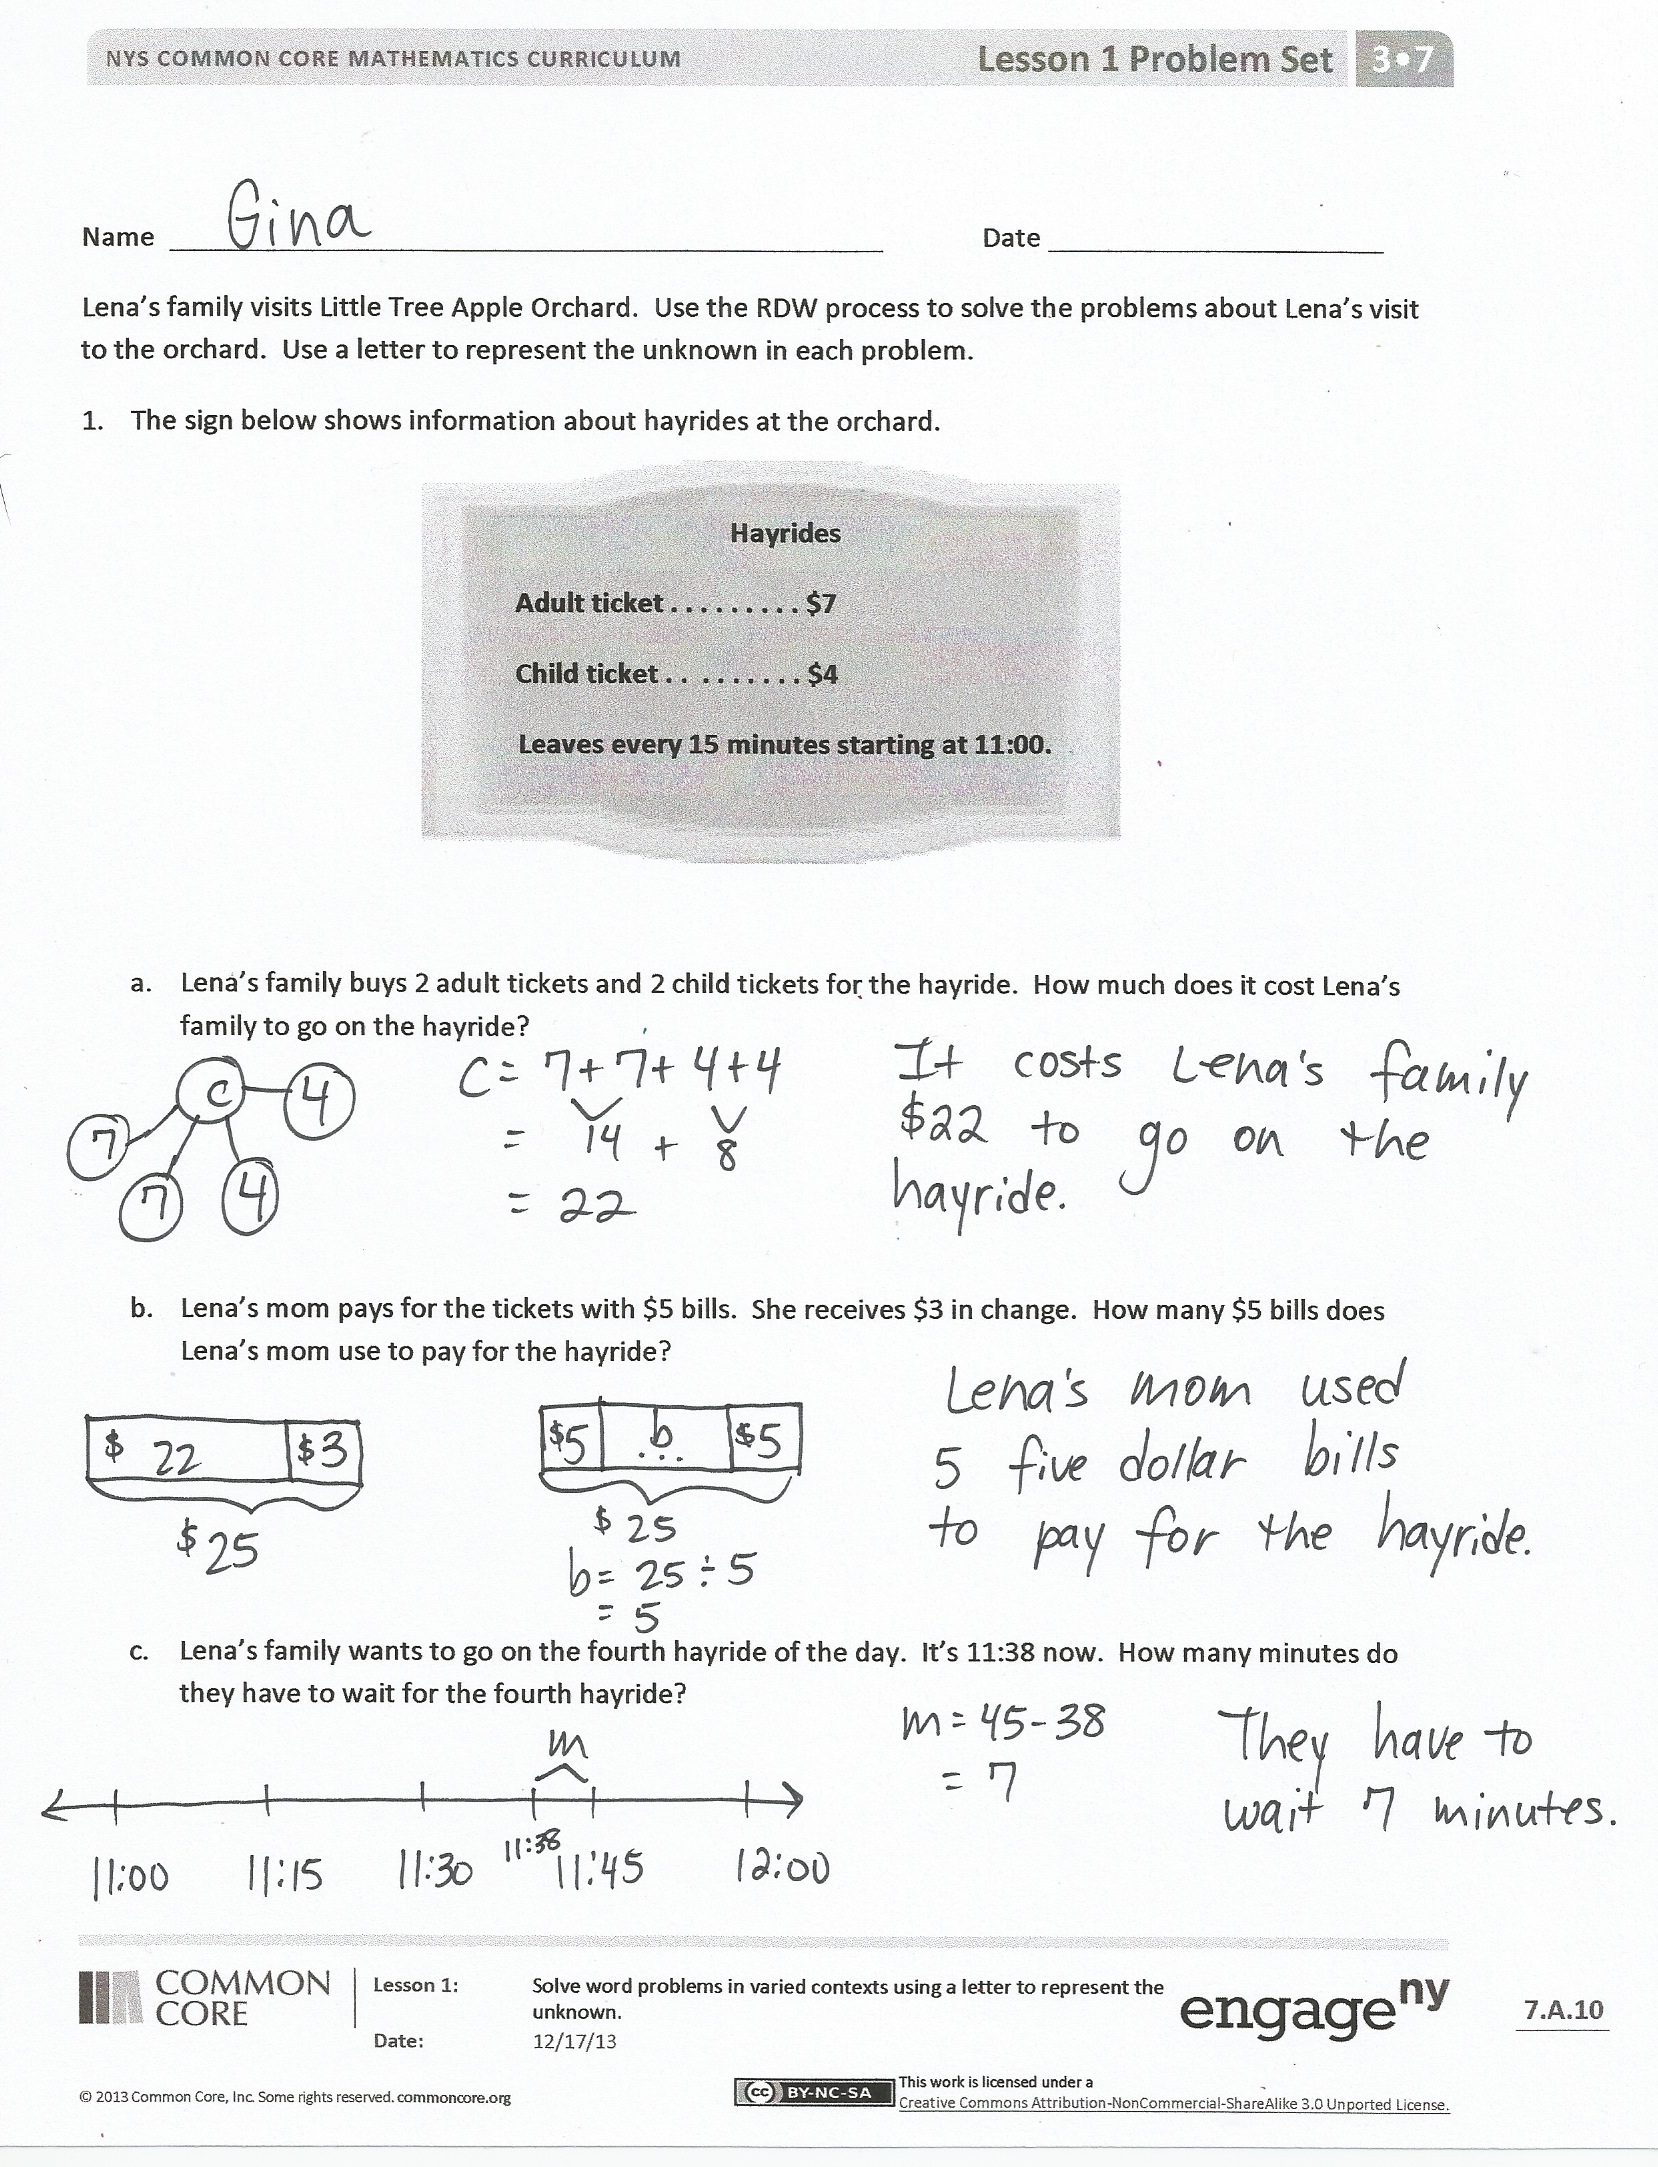 NYS COMMON CORE MATHEMATICS CURRICULUM Lesson 1 Problem Set 3•7
Name Gina Date
Lena's family visits Little Tree Apple Orchard. Use the RDW process to solve the problems about Lena's visit
to the orchard. Use a letter to represent the unknown in each problem.
1. The sign below shows information about hayrides at the orchard.
Hayrides
Adult ticket......... $7
Child ticket......... $4
Leaves every 15 minutes starting at 11:00.
a. Lena's family buys 2 adult tickets and 2 child tickets for the hayride. How much does it cost Lena's
family to go on the hayride?
C 4 7 7 4
C = 7+7+4+4
= 14 + 8
= 22
It costs Lena's family
$22 to go on the
hayride.
b. Lena's mom pays for the tickets with $5 bills. She receives $3 in change. How many $5 bills does
Lena's mom use to pay for the hayride?
$ 22 $3
$25
$5 b ... $5
$ 25
b = 25 ÷ 5
= 5
Lena's mom used
5 five dollar bills
to pay for the hayride.
c. Lena's family wants to go on the fourth hayride of the day. It's 11:38 now. How many minutes do
they have to wait for the fourth hayride?
m
11:00 11:15 11:30 11:38 11:45 12:00
m = 45-38
= 7
They have to
wait 7 minutes.
COMMON
CORE
Lesson 1: Solve word problems in varied contexts using a letter to represent the
unknown.
Date: 12/17/13
engage ny
7.A.10
© 2013 Common Core, Inc. Some rights reserved. commoncore.org
cc BY-NC-SA
This work is licensed under a
Creative Commons Attribution-NonCommercial-ShareAlike 3.0 Unported License.